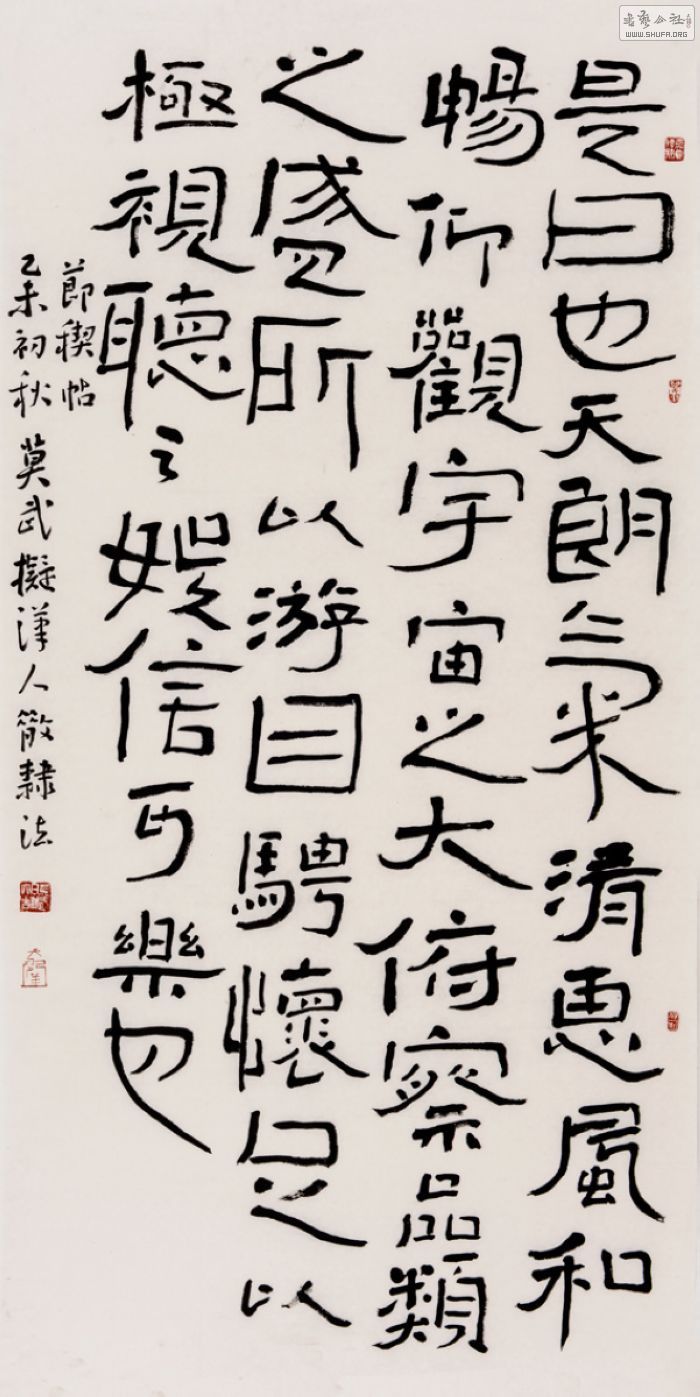 是日也天朗气米清惠風和
暢仰觀宇宙之大俯察品類
之盛所以游目騁懷足以
極視聽之娛信可樂也
節稧帖
乙未初秋 莫武擬漢人散隸法
WWW.SHUFA.ORG